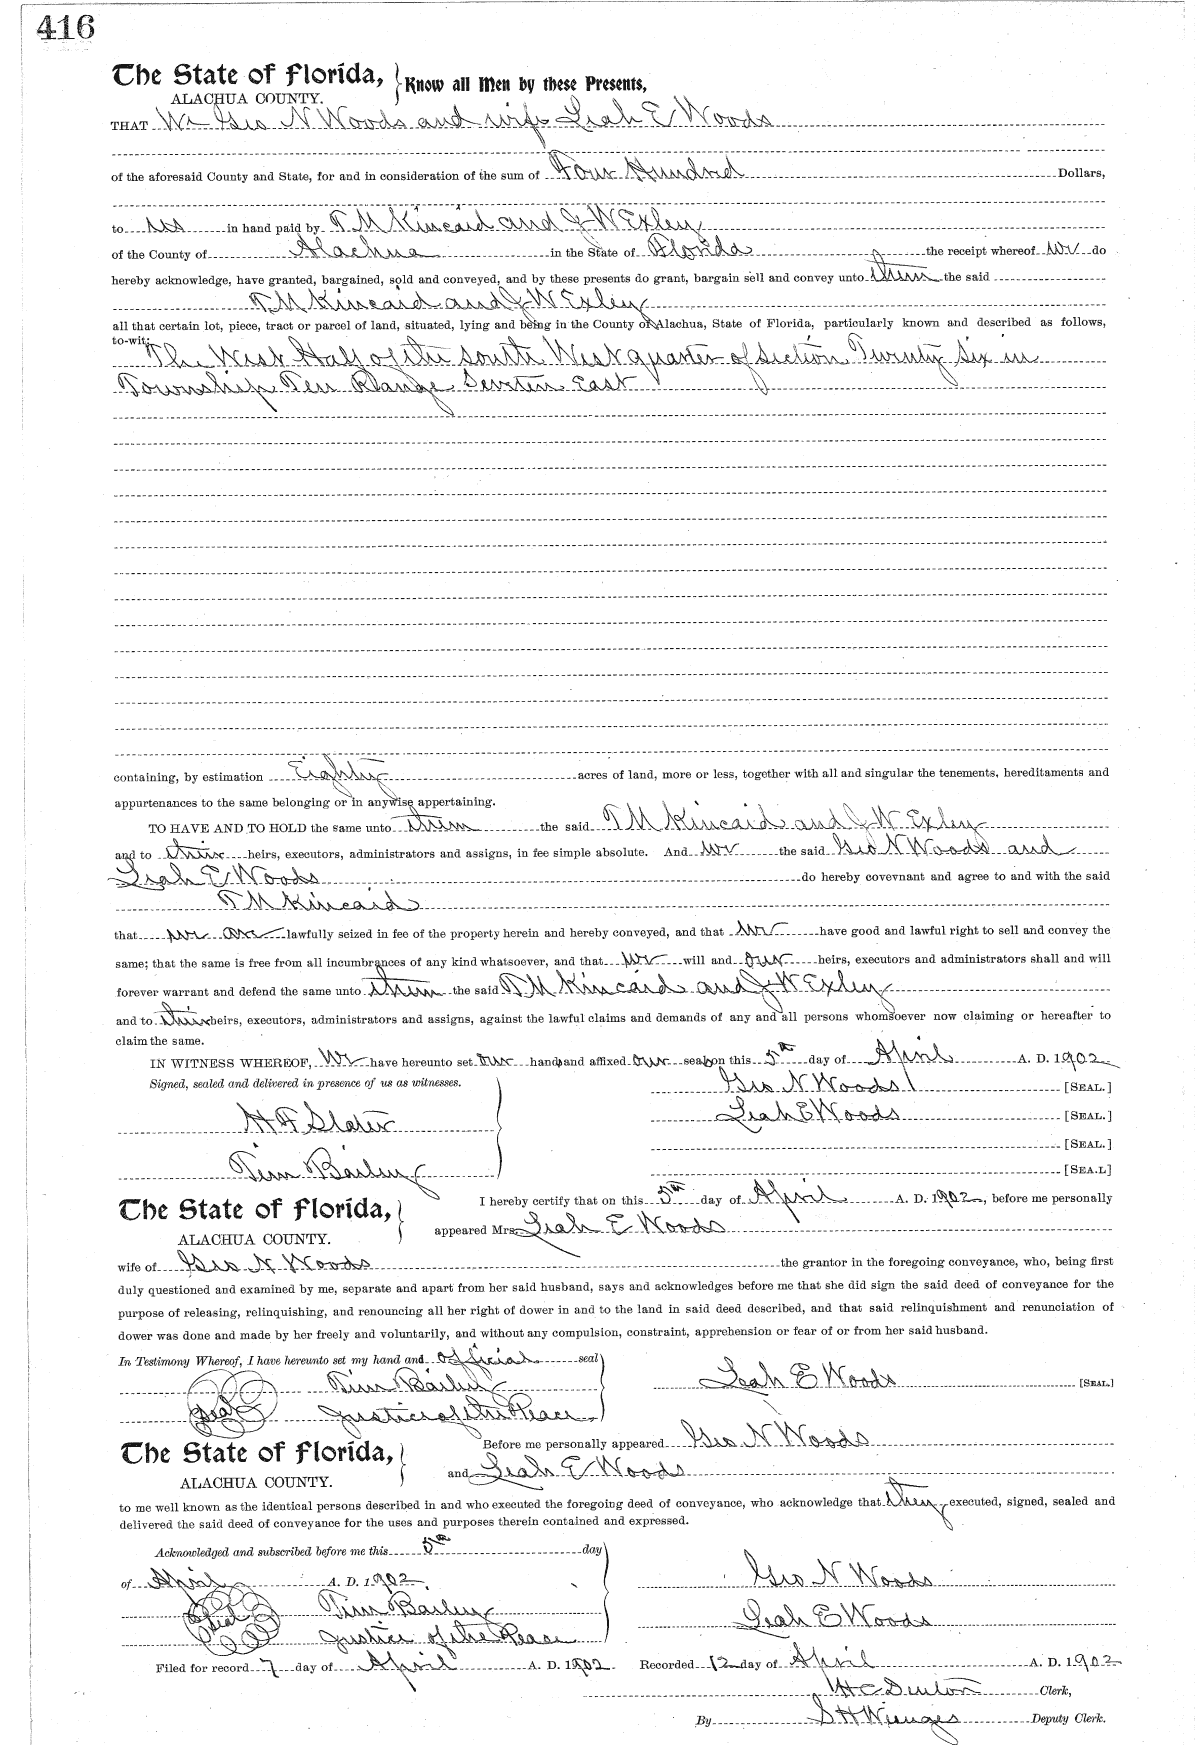 416
The State of Florida, } Know all Men by these Presents,
ALACHUA COUNTY.
THAT We Geo N Woods and wife Leah E Woods
of the aforesaid County and State, for and in consideration of the sum of Four Hundred Dollars,
to us in hand paid by T M Kincaid and J W Exley
of the County of Alachua in the State of Florida the receipt whereof we do
hereby acknowledge, have granted, bargained, sold and conveyed, and by these presents do grant, bargain sell and convey unto them the said
T M Kincaid and J W Exley
all that certain lot, piece, tract or parcel of land, situated, lying and being in the County of Alachua, State of Florida, particularly known and described as follows,
to-wit:
The West Half of the South West quarter of Section Twenty Six in
Township Ten Range Seventeen East
containing, by estimation Eighty acres of land, more or less, together with all and singular the tenements, hereditaments and
appurtenances to the same belonging or in anywise appertaining.
TO HAVE AND TO HOLD the same unto them the said T M Kincaid and J W Exley
and to their heirs, executors, administrators and assigns, in fee simple absolute. And we the said Geo N Woods and
Leah E Woods do hereby covevnant and agree to and with the said
T M Kincaid
that we are lawfully seized in fee of the property herein and hereby conveyed, and that we have good and lawful right to sell and convey the
same; that the same is free from all incumbrances of any kind whatsoever, and that we will and our heirs, executors and administrators shall and will
forever warrant and defend the same unto them the said T M Kincaid and J W Exley
and to their heirs, executors, administrators and assigns, against the lawful claims and demands of any and all persons whomsoever now claiming or hereafter to
claim the same.
IN WITNESS WHEREOF, We have hereunto set our hands and affixed our seals on this 5th day of April A. D. 1902
Signed, sealed and delivered in presence of us as witnesses. Geo N Woods [SEAL.]
H F Slater Leah E Woods [SEAL.]
[SEAL.]
Tim Bailey [SEA.L]
The State of Florida, } I hereby certify that on this 5th day of April A. D. 1902, before me personally
ALACHUA COUNTY. appeared Mrs. Leah E Woods
wife of Geo N Woods the grantor in the foregoing conveyance, who, being first
duly questioned and examined by me, separate and apart from her said husband, says and acknowledges before me that she did sign the said deed of conveyance for the
purpose of releasing, relinquishing, and renouncing all her right of dower in and to the land in said deed described, and that said relinquishment and renunciation of
dower was done and made by her freely and voluntarily, and without any compulsion, constraint, apprehension or fear of or from her said husband.
In Testimony Whereof, I have hereunto set my hand and official seal
Tim Bailey Leah E Woods [SEAL]
Seal Justice of the Peace
The State of Florida, } Before me personally appeared Geo N Woods
ALACHUA COUNTY. and Leah E Woods
to me well known as the identical persons described in and who executed the foregoing deed of conveyance, who acknowledge that they executed, signed, sealed and
delivered the said deed of conveyance for the uses and purposes therein contained and expressed.
Acknowledged and subscribed before me this 5th day
of April A. D. 1902. Geo N Woods
Seal Tim Bailey Leah E Woods
Justice of the Peace
Filed for record 7 day of April A. D. 1902 Recorded 12 day of April A. D. 1902
H C Denton Clerk,
By S H Wienges Deputy Clerk.